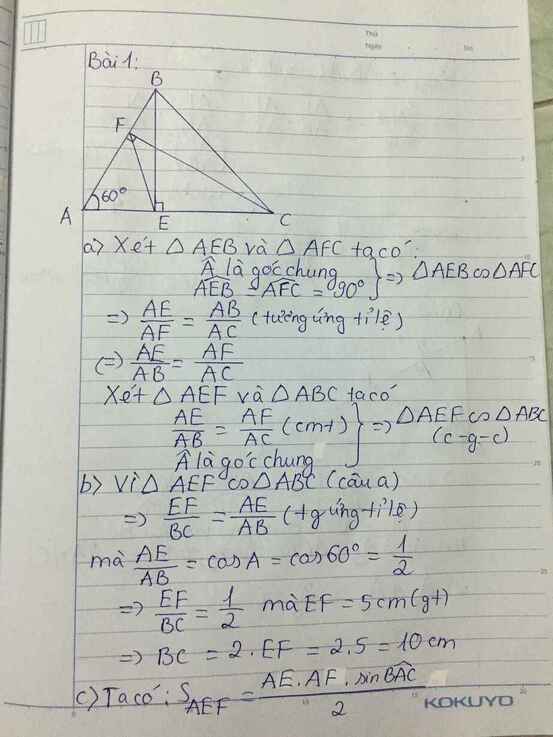 Thứ
Ngày No
Bài 1:
B
F
60°
A E C
a) Xét △ AEB và △ AFC ta có:
Â là góc chung
AEB = AFC = 90° } => △AEB ∽ △AFC
=> AE/AF = AB/AC (tương ứng tỉ lệ)
(=) AE/AB = AF/AC
Xét △ AEF và △ ABC ta có
AE/AB = AF/AC (cmt) } => △AEF ∽ △ABC
Â là góc chung (c-g-c)
b) Vì △ AEF ∽ △ABC (câu a)
=> EF/BC = AE/AB (tg ứng tỉ lệ)
mà AE/AB = cosA = cos60° = 1/2
=> EF/BC = 1/2 mà EF = 5cm (gt)
=> BC = 2. EF = 2.5 = 10 cm
c) Ta có: S_AEF = AE.AF.sinBÂC/2
KOKUYO